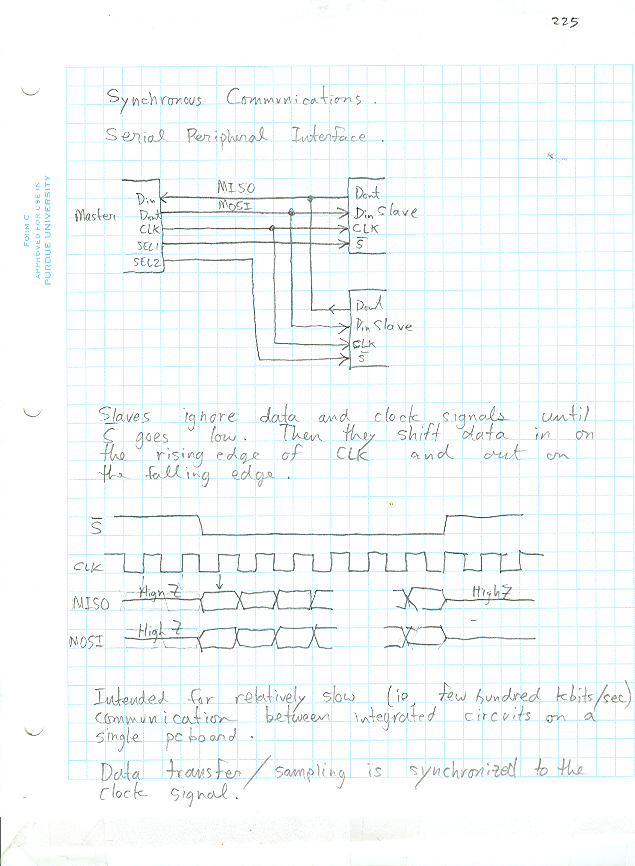 225
Synchronous Communications.
Serial Peripheral Interface.
FORM C
APPROVED FOR USE IN
PURDUE UNIVERSITY
MISO
MOSI
Master
Din
Dout
CLK
SEL1
SEL2
Dout
Din Slave
CLK
S̅
Dout
Din Slave
CLK
S̅
Slaves ignore data and clock signals until
S̅ goes low. Then they shift data in on
the rising edge of CLK and out on
the falling edge.
S̅
CLK
MISO High Z High Z
MOSI High Z
Intended for relatively slow (ie few hundred kbits/sec)
communication between integrated circuits on a
single pc board.
Data transfer/sampling is synchronized to the
clock signal.